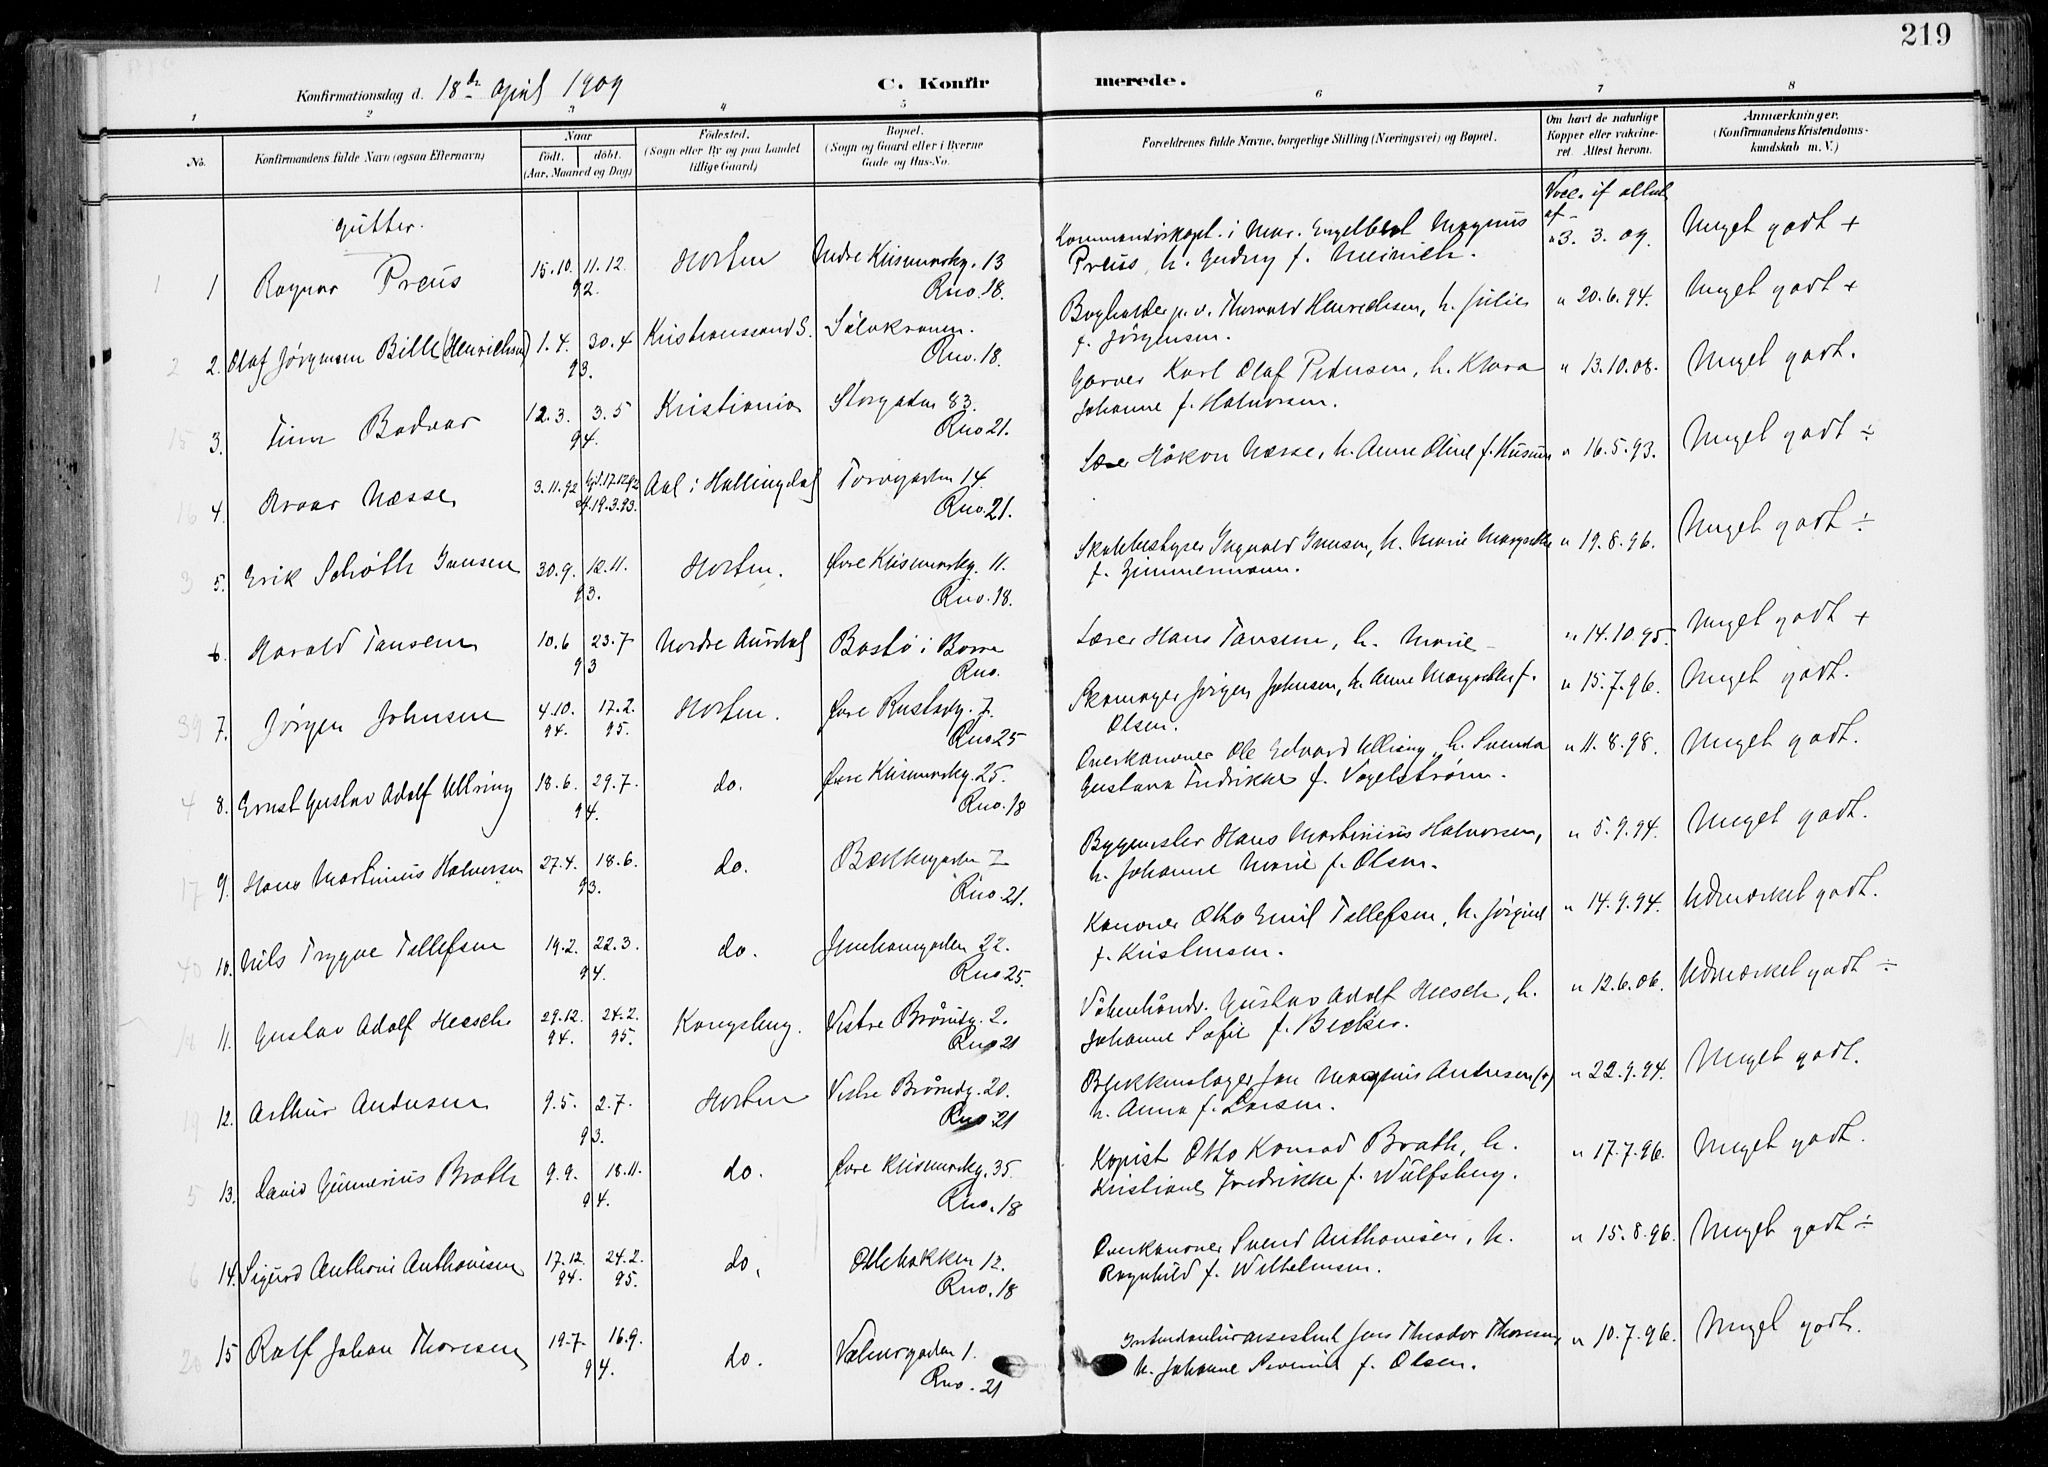 219
Konfirmationsdag d. 18de April 1909
C. Konfirmerede.
1 2 3 4 5 6 7 8
No.
Konfirmandens fulde Navn (ogsaa Efternavn)
Naar
født. døbt.
(Aar, Maaned og Dag)
Fødested.
(Sogn eller By og paa Landet
tillige Gaard)
Bopæl.
(Sogn og Gaard eller i Byerne
Gade og Hus-No.
Forældrenes fulde Navne, borgerlige Stilling (Næringsvei) og Bopæl.
Om havt de naturlige
Kopper eller vakcine-
ret. Attest herom.
Anmærkninger.
(Konfirmandens Kristendoms-
kundskab m. V.)
Gutter.
Vacc. if attest
af
1 1 Ragnar Preus 15.10. 11.12. 92. Horten Indre Keisemarksg. 13 Rno. 18.
Kommandørkapt. i Mar. Engelbret Magnus
Preus, h. Gudny f. Meinich. " 3. 3. 09. Meget godt +
2 2. Olaf Jørgensen Bille (Henrichsen) 1.4. 30.4 93. Kristianssand S. Rno. 18.
Bogholder p. v. Thorvald Henrichsen, h. Julie
f. Jørgensen. " 20.6.94. Meget godt +
15 3. Finn Bodvar 12.3. 3.5 94. Kristiania Storgaden 83. Rno 21.
Garver Karl Olaf Pedersen, h. Klara
Johanne f. Halvorsen. " 13.10.08. Meget godt.
16 4. Arvar Næsse 3.11.92 17.12.92 19.3.93. Aal i Hallingdal Torvegaden 14. Rno. 21.
Lærer Håkon Næsse, h. Anne Oline f. Husum " 16.5.93. Meget godt ÷
3 5. Erik Schøth Iversen 30.9. 12.11. 93. Horten. Øvre Keisemarksg. 11. Rno. 18.
Skolebestyrer Ingvald Iversen, h. Marie Margrethe
f. Zimmermann. " 19.8.96. Meget godt ÷
6. Harald Tansem 10.6 23.7 93 Nordre Aurdal Bastø i Borre Rno.
Lærer Hans Tansem, h. Marie " 14.10.95. Meget godt +
39 7. Jørgen Johnsen 4.10. 94. 17.2. 95. Horten. Øvre Rustadg. 7. Rno 25
Skomager Jørgen Johnsen, h. Anne Margrethe f.
Olsen. " 15.7.96. Meget godt.
4 8. Ernst Gustav Adolf Ullring 18.6. 29.7. 94. do. Øvre Keisemarksg. 25. Rno. 18
Overkanoner Ole Edvard Ullring, h. Svenda
Gustava Fredrikke f. Vogelstrøm. " 11.8.98. Meget godt.
17 9. Hans Martinius Halvorsen 27.4. 18.6. 93. do. Bækkegaden 7 Rno. 21.
Bygmester Hans Martinius Halvorsen,
h. Johanne Marie f. Olsen. " 5.9.94. Meget godt.
40 10. Nils Trygve Tellefsen 19.2. 22.3. 94. do. Jernbanegaden 22. Rno 25.
Kanoner Otto Emil Tellefsen, h. Jørgine
f. Kristensen. " 14.9.94. Udmærket godt.
18 11. Gustav Adolf Heesch 29.12. 94. 24.2. 95. Kongsberg. Vestre Brårudg. 2. Rno 21
Våbenhåndv. Gustav Adolf Heesch, h.
Johanne Sofie f. Becker. " 12.6.06. Udmærket godt ÷
19 12. Arthur Andersen 9.5. 2.7. 93. Horten Vestre Brårudg. 20. Rno 21
Blikkenslager Jan Magnus Andersen (+)
h. Anna f. Larsen. " 22.9.94. Meget godt.
5 13. David Gunerius Brath 9.9. 18.11. 94. do. Øvre Keisemarksg. 35. Rno. 18
Kopist Otto Konrad Brath, h.
Kristiane Fredrikke f. Wulfsberg. " 17.7.96. Meget godt.
6 14. Sigurd Anthoni Anthonisen 17.12. 94. 24.2. 95. do. Ollebakken 12. Rno. 18
Overkanoner Svend Anthonisen, h.
Ragnhild f. Wilhelmsen. " 15.8.96. Meget godt ÷
20 15 Rolf Johan Thoresen 19.7. 16.9. 94. do. Vælurgaden 1. Rno. 21
Intendanturassistent Jens Theodor Thoresen,
h. Johanne Severine f. Olsen. " 10.7.96. Meget godt.